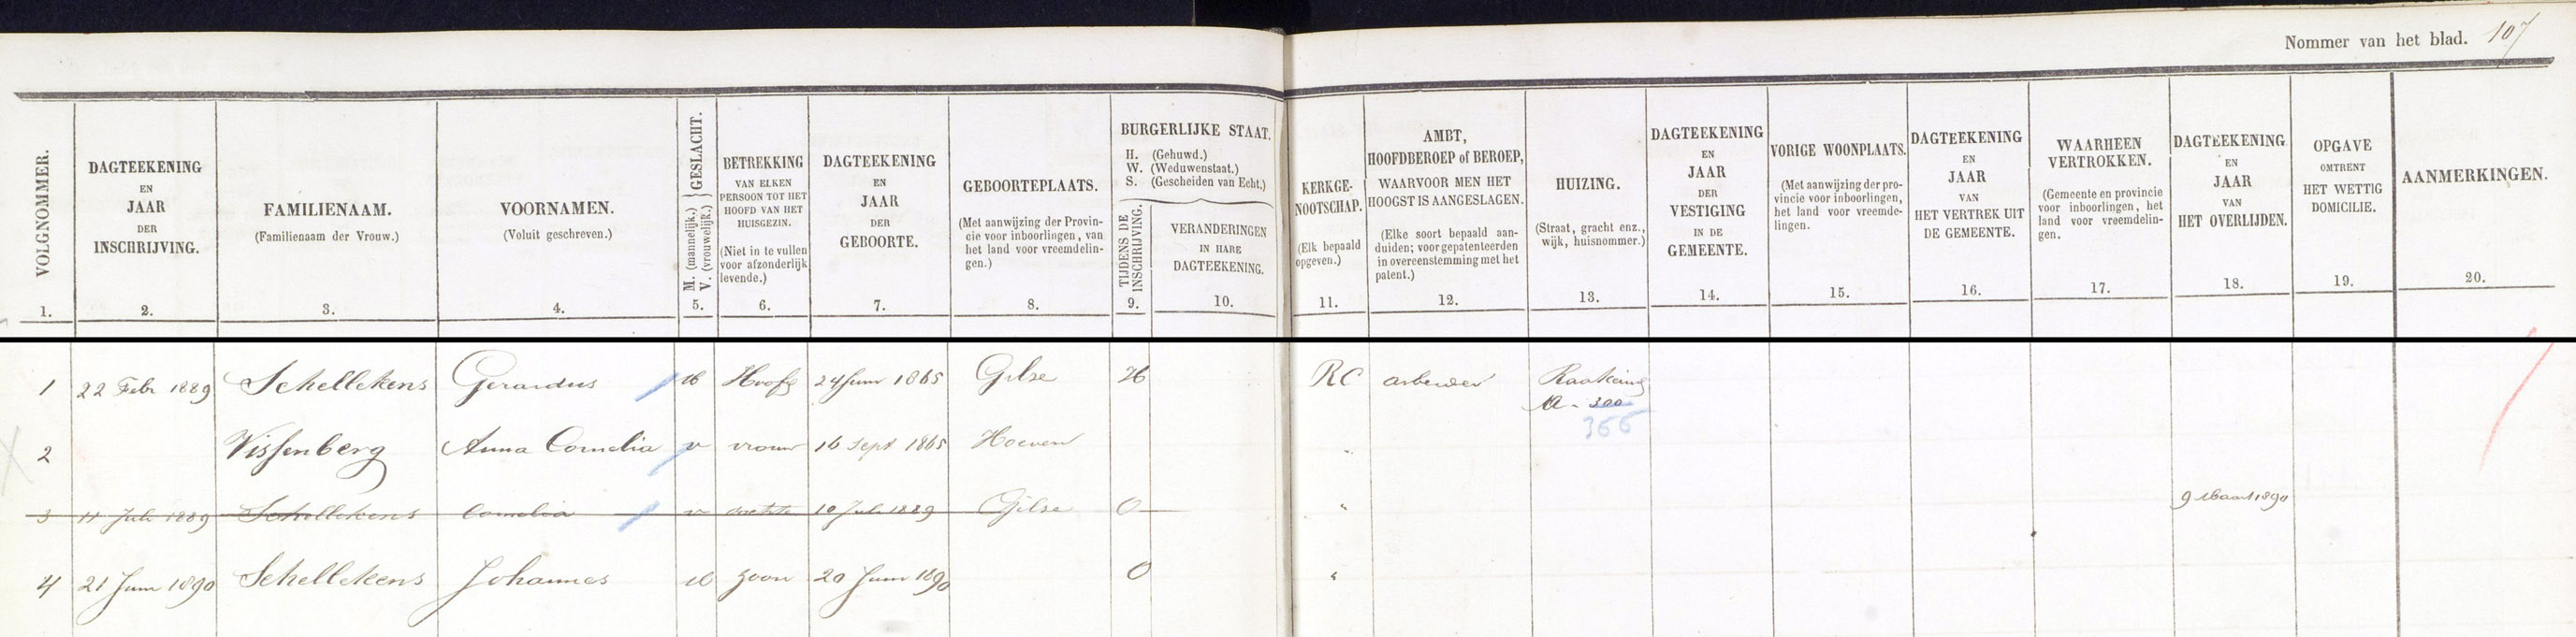 Nommer van het blad. 107
VOLGNOMMER.
1.
DAGTEEKENING
EN
JAAR
DER
INSCHRIJVING.
2.
FAMILIENAAM.
(Familienaam der Vrouw.)
3.
VOORNAMEN.
(Voluit geschreven.)
4.
M. (mannelijk.) } GESLACHT.
V. (vrouwelijk.)
5.
BETREKKING
VAN ELKEN
PERSOON TOT HET
HOOFD VAN HET
HUISGEZIN.
(Niet in te vullen
voor afzonderlijk
levende.)
6.
DAGTEEKENING
EN
JAAR
DER
GEBOORTE.
7.
GEBOORTEPLAATS.
(Met aanwijzing der Provin-
cie voor inboorlingen, van
het land voor vreemdelin-
gen.)
8.
BURGERLIJKE STAAT.
H. (Gehuwd.)
W. (Weduwenstaat.)
S. (Gescheiden van Echt.)
TIJDENS DE
INSCHRIJVING.
9.
VERANDERINGEN
IN HARE
DAGTEEKENING.
10.
KERKGE-
NOOTSCHAP.
(Elk bepaald
opgeven.)
11.
AMBT,
HOOFDBEROEP of BEROEP,
WAARVOOR MEN HET
HOOGST IS AANGESLAGEN.
(Elke soort bepaald aan-
duiden; voor gepatenteerden
in overeenstemming met het
patent.)
12.
HUIZING.
(Straat, gracht enz.,
wijk, huisnommer.)
13.
DAGTEEKENING
EN
JAAR
DER
VESTIGING
IN DE
GEMEENTE.
14.
VORIGE WOONPLAATS.
(Met aanwijzing der pro-
vincie voor inboorlingen,
het land voor vreemde-
lingen.
15.
DAGTEEKENING
EN
JAAR
VAN
HET VERTREK UIT
DE GEMEENTE.
16.
WAARHEEN
VERTROKKEN.
(Gemeente en provincie
voor inboorlingen, het
land voor vreemdelin-
gen.
17.
DAGTEEKENING
EN
JAAR
VAN
HET OVERLIJDEN.
18.
OPGAVE
OMTRENT
HET WETTIG
DOMICILIE.
19.
AANMERKINGEN.
20.
1 22 Febr 1889 Schellekens Gerardus M Hoofd 24 Juni 1865 Gilse H RC arbeider Raakeind
A. 300
366
2 Vissenberg Anna Cornelia v vrouw 16 Sept 1865 Hoeven "
3 11 Juli 1889 Schellekens Cornelia v dochter 10 Juli 1889 Gilse O " 9 Maart 1890
4 21 Juni 1890 Schellekens Johannes M zoon 20 Juni 1890 O "